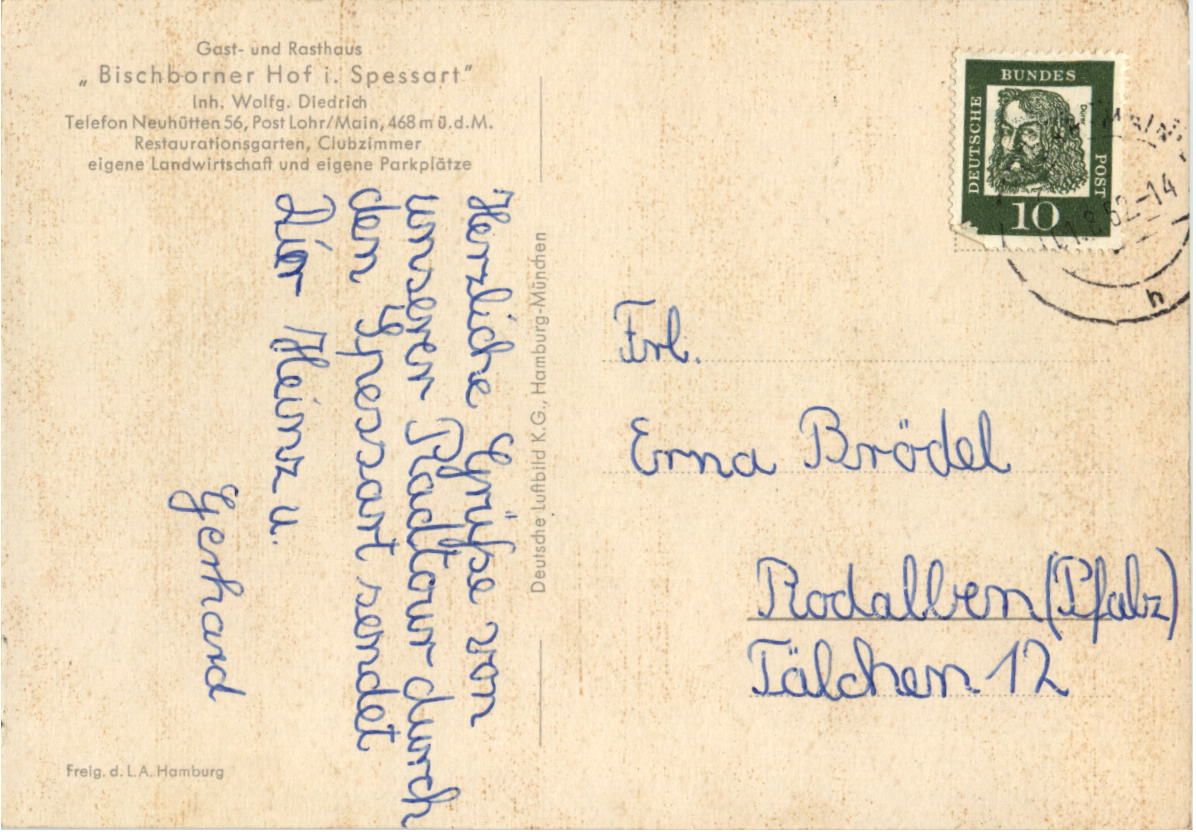 Gast- und Rasthaus
„Bischborner Hof i. Spessart"
Inh. Wolfg. Diedrich
Telefon Neuhütten 56, Post Lohr/Main, 468 m ü.d.M.
Restaurationsgarten, Clubzimmer
eigene Landwirtschaft und eigene Parkplätze
Herzliche Grüße von
unserer Radtour durch
den Spessart sendet
Dir Heinz u.
Gerhard
Freig. d. L.A. Hamburg
Deutsche Luftbild K.G., Hamburg-München
DEUTSCHE
BUNDES
POST
Dürer
10
62-14
h
Frl.
Erna Brödel
Rodalben (Pfalz)
Tälchen 12